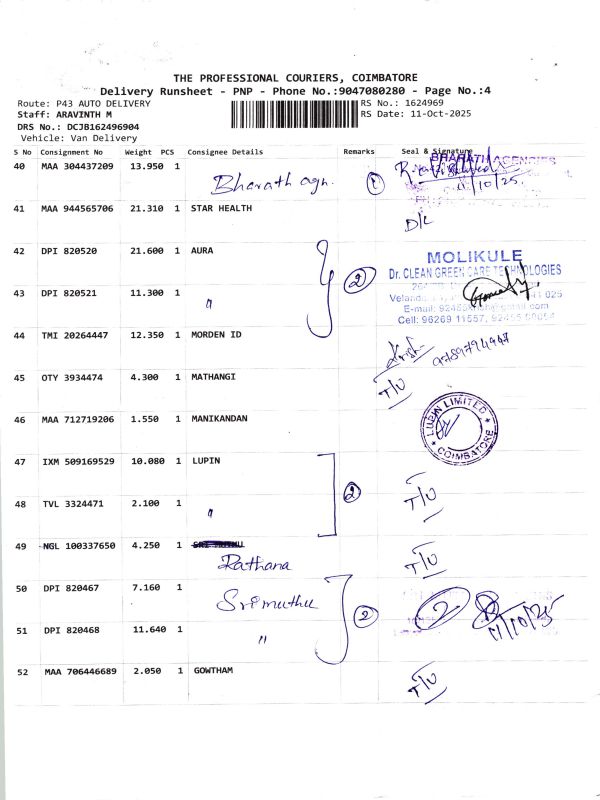 THE PROFESSIONAL COURIERS, COIMBATORE
Delivery Runsheet - PNP - Phone No.:9047080280 - Page No.:4
Route: P43 AUTO DELIVERY
RS No.: 1624969
Staff: ARAVINTH M
RS Date: 11-Oct-2025
DRS No.: DCJB162496904
Vehicle: Van Delivery
S No Consignment No Weight PCS Consignee Details Remarks Seal & Signature
40 MAA 304437209 13.950 1 Bharath agn. 1 BHARATH AGENCIES
11/10/25.
41 MAA 944565706 21.310 1 STAR HEALTH D/L
42 DPI 820520 21.600 1 AURA 2 MOLIKULE
Dr. CLEAN GREEN CARE TECHNOLOGIES
43 DPI 820521 11.300 1 "
Cell: 96269 11557,
44 TMI 20264447 12.350 1 MORDEN ID 9789794947
45 OTY 3934474 4.300 1 MATHANGI T/U
46 MAA 712719206 1.550 1 MANIKANDAN LUPIN LIMITED COIMBATORE
47 IXM 509169529 10.080 1 LUPIN 2
48 TVL 3324471 2.100 1 " T/U
49 NGL 100337650 4.250 1 Rathana T/U
50 DPI 820467 7.160 1 Srimuthu 2 2 11/10/25
51 DPI 820468 11.640 1 "
52 MAA 706446689 2.050 1 GOWTHAM T/U